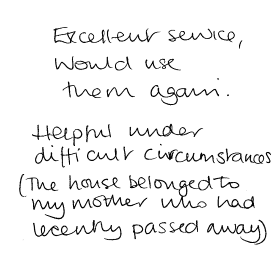 Excellent service,
Would use
them again.
Helpful under
difficult circumstances
(The house belonged to
my mother who had
recently passed away)